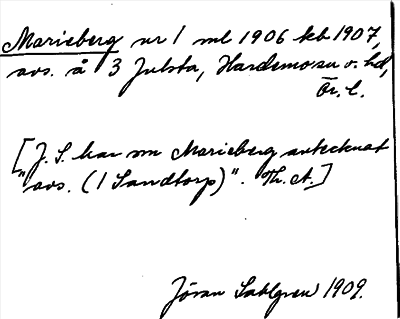 Marieberg nr 1 ml 1906 kb 1907,
avs. å 3 Julsta, Hardemo sn o. hd,
Ör. l.
[J. S. har om Marieberg antecknat
"avs. (1 Sandtorp)". Th. A.]
Jöran Sahlgren 1909.